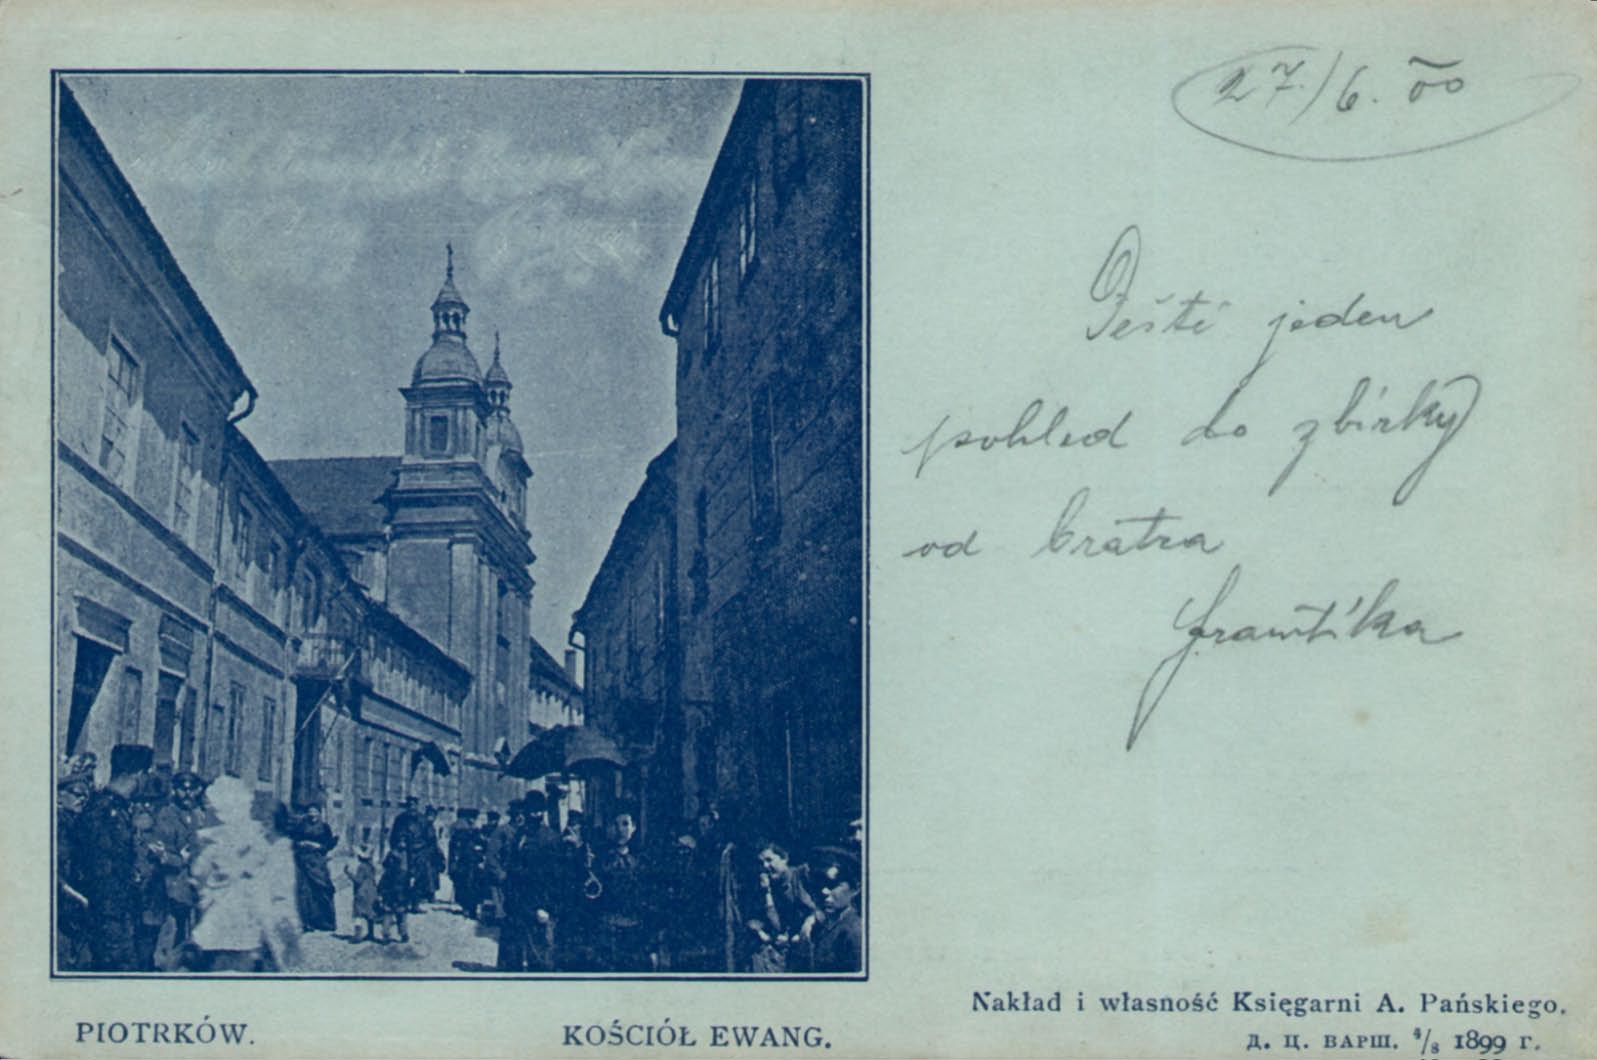 27./6. 00
Ještě jeden
pohled do zbírky
od bratra
Frantíka
PIOTRKÓW.
KOŚCIÓŁ EWANG.
Nakład i własność Księgarni A. Pańskiego.
Д. Ц. ВАРШ. 4/8 1899 г.